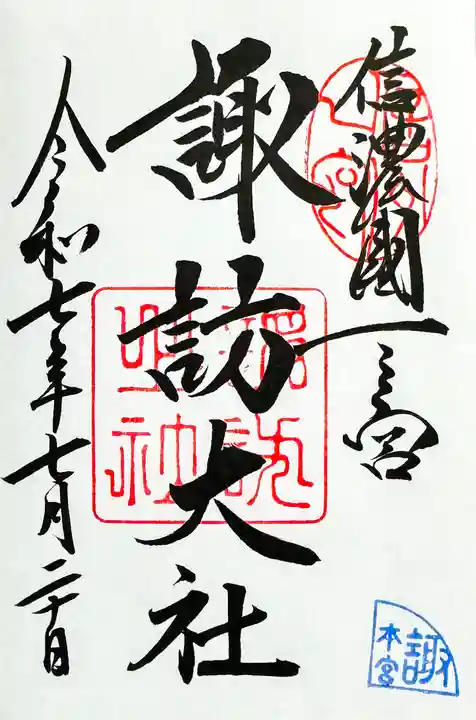 信濃國一之宮
諏訪大社
令和七年七月二十日
諏訪
明神
諏
本宮